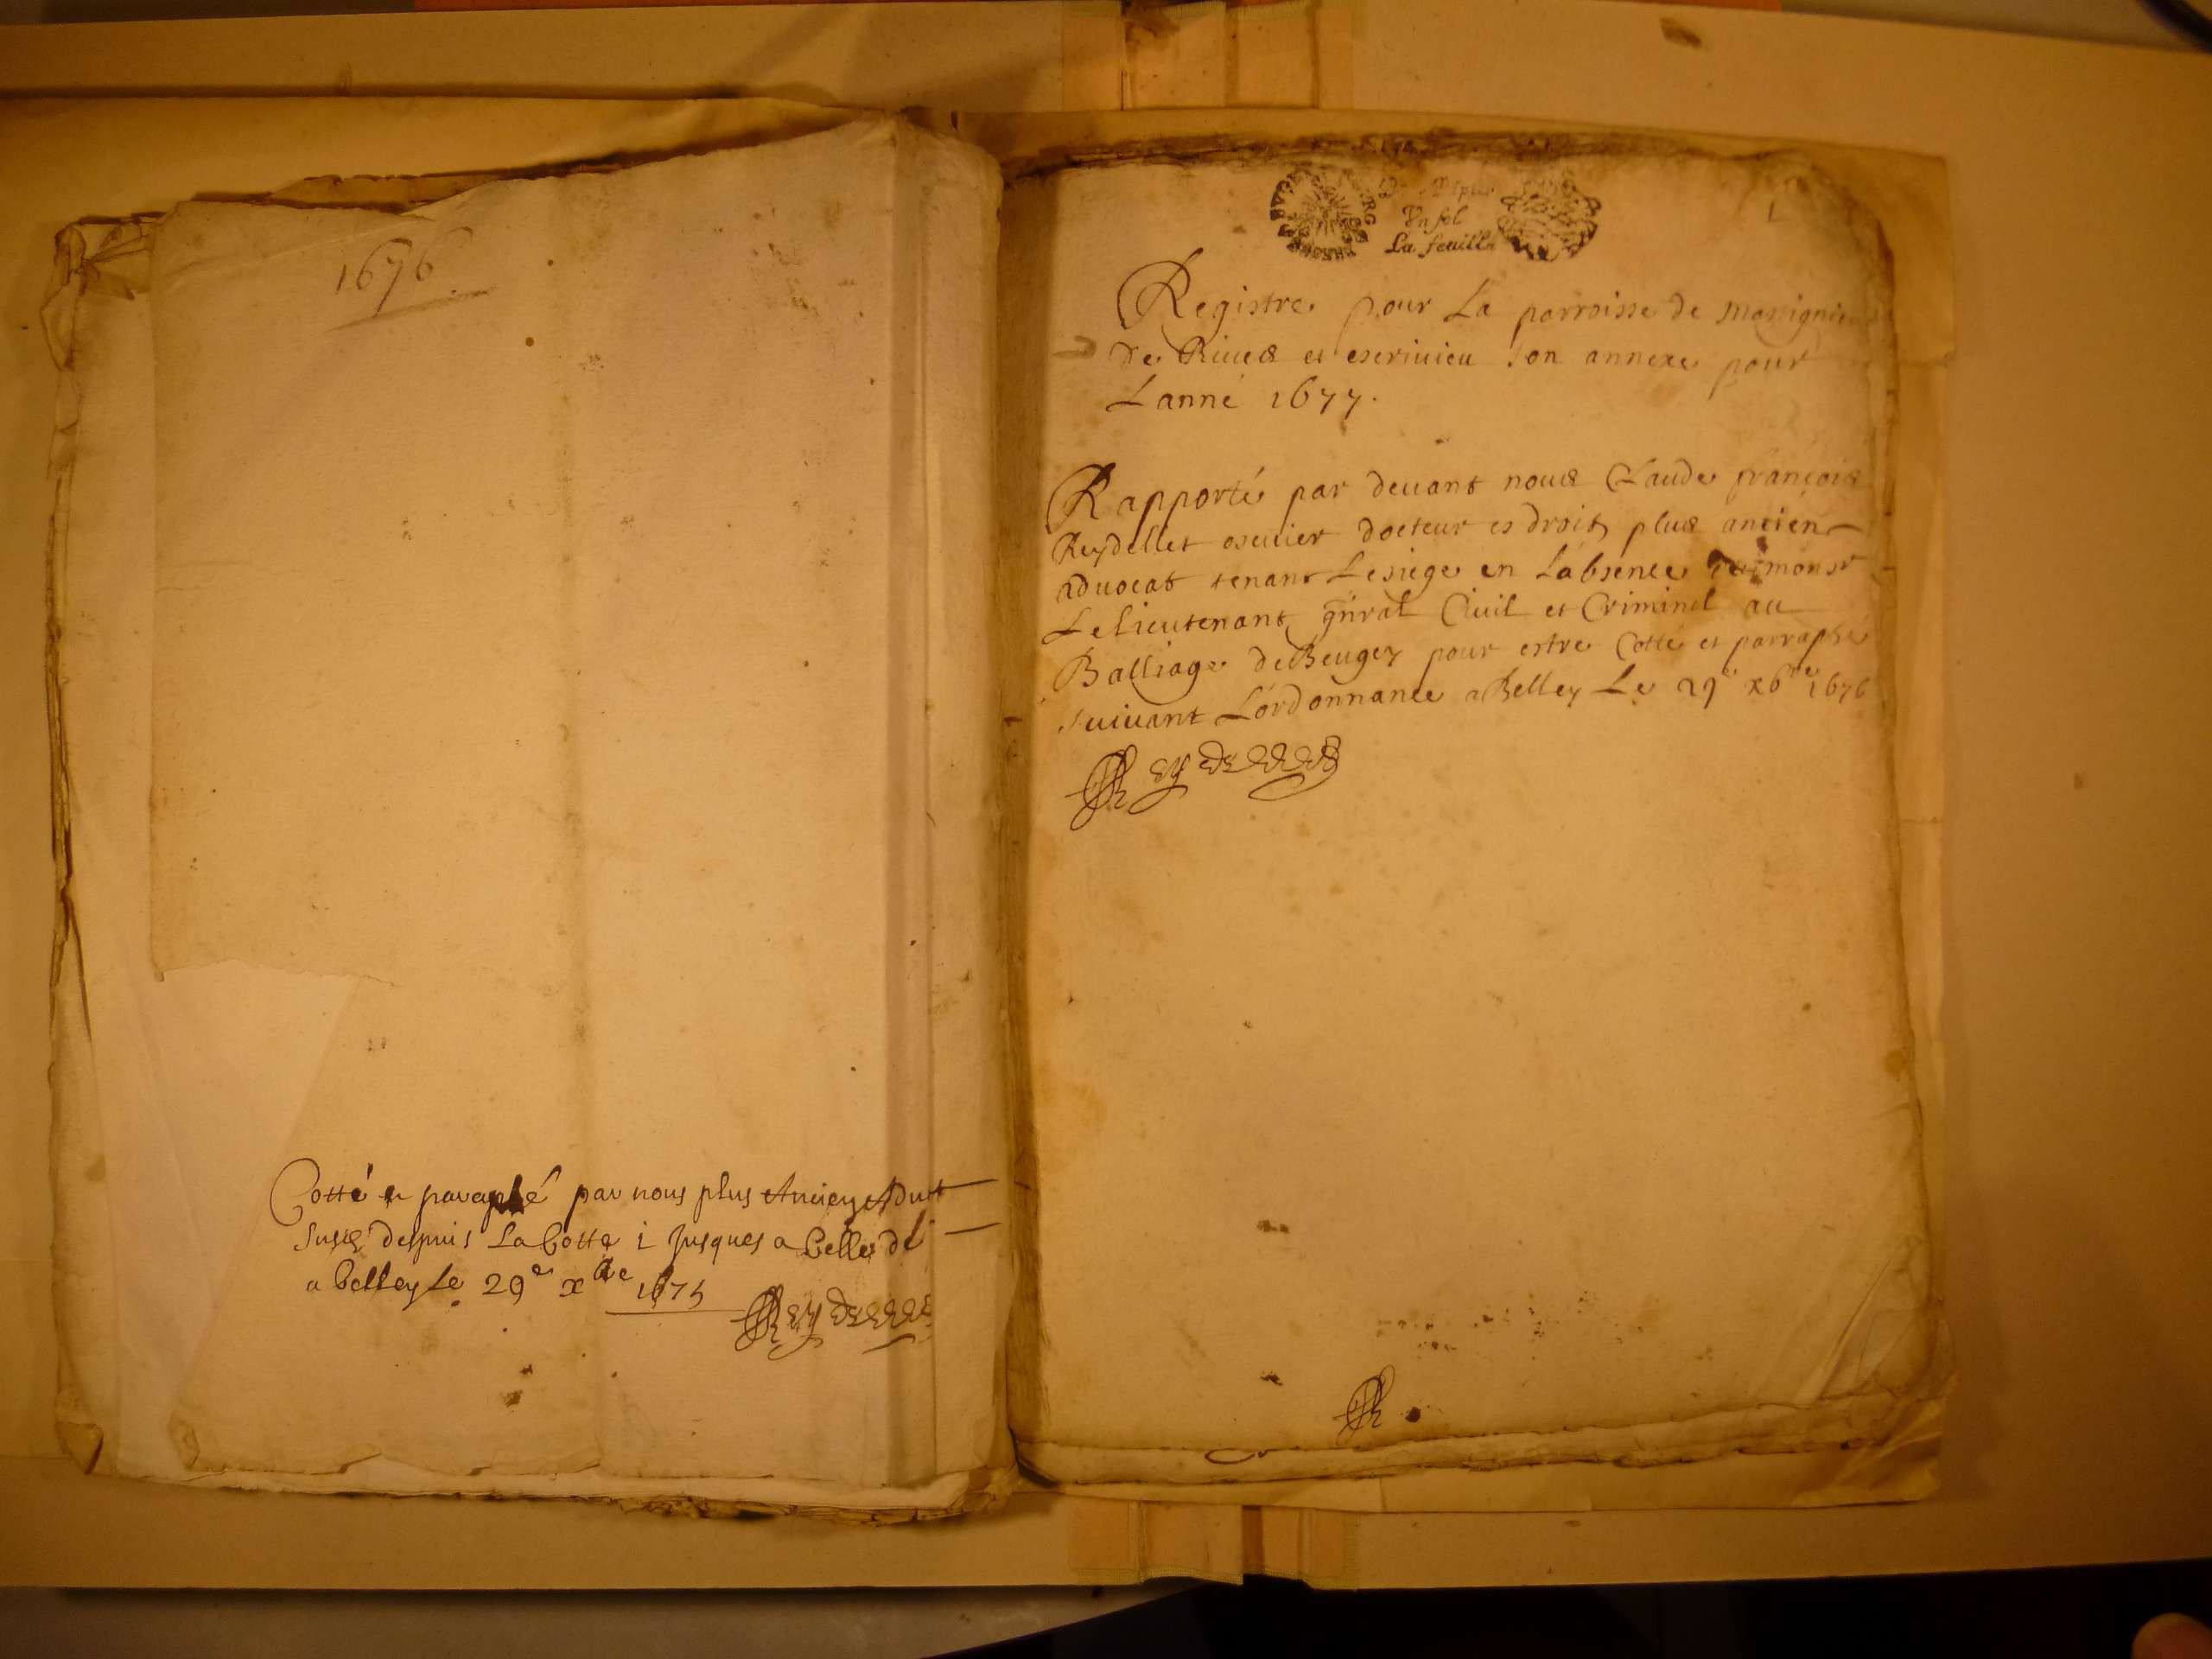 1676
Cotté et paraphé par nous plus Ancien Aduat
Susd despuis La Cotte 1 Jusques a Celle de
a Belley Le 29e xbre 1675
Reydellet
1
Un sol
La feuille
Registre pour La parroisse de massignieu
de Riues et escriuieu son annexe pour
Lanné 1677.
Rapporté par deuant nous Claude françois
Reydellet escuier docteur es droits plus ancien
aduocat tenant Le siege en Labsence de monsr
Le Lieutenant gnral Ciuil et Criminel au
Balliage de Beugey pour estre Cotté et parraphé
suiuant Lordonnance a Belley Le 29e xbre 1676
Reydellet
R